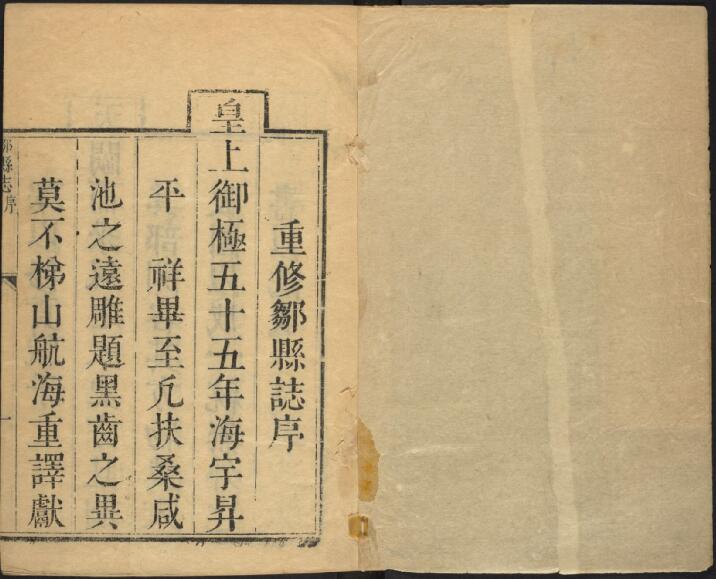 重修鄒縣誌序
皇上御極五十五年海宇昇
平 祥畢至凡扶桑咸
池之遠雕題黑齒之異
莫不梯山航海重譯獻
鄒縣志序
一